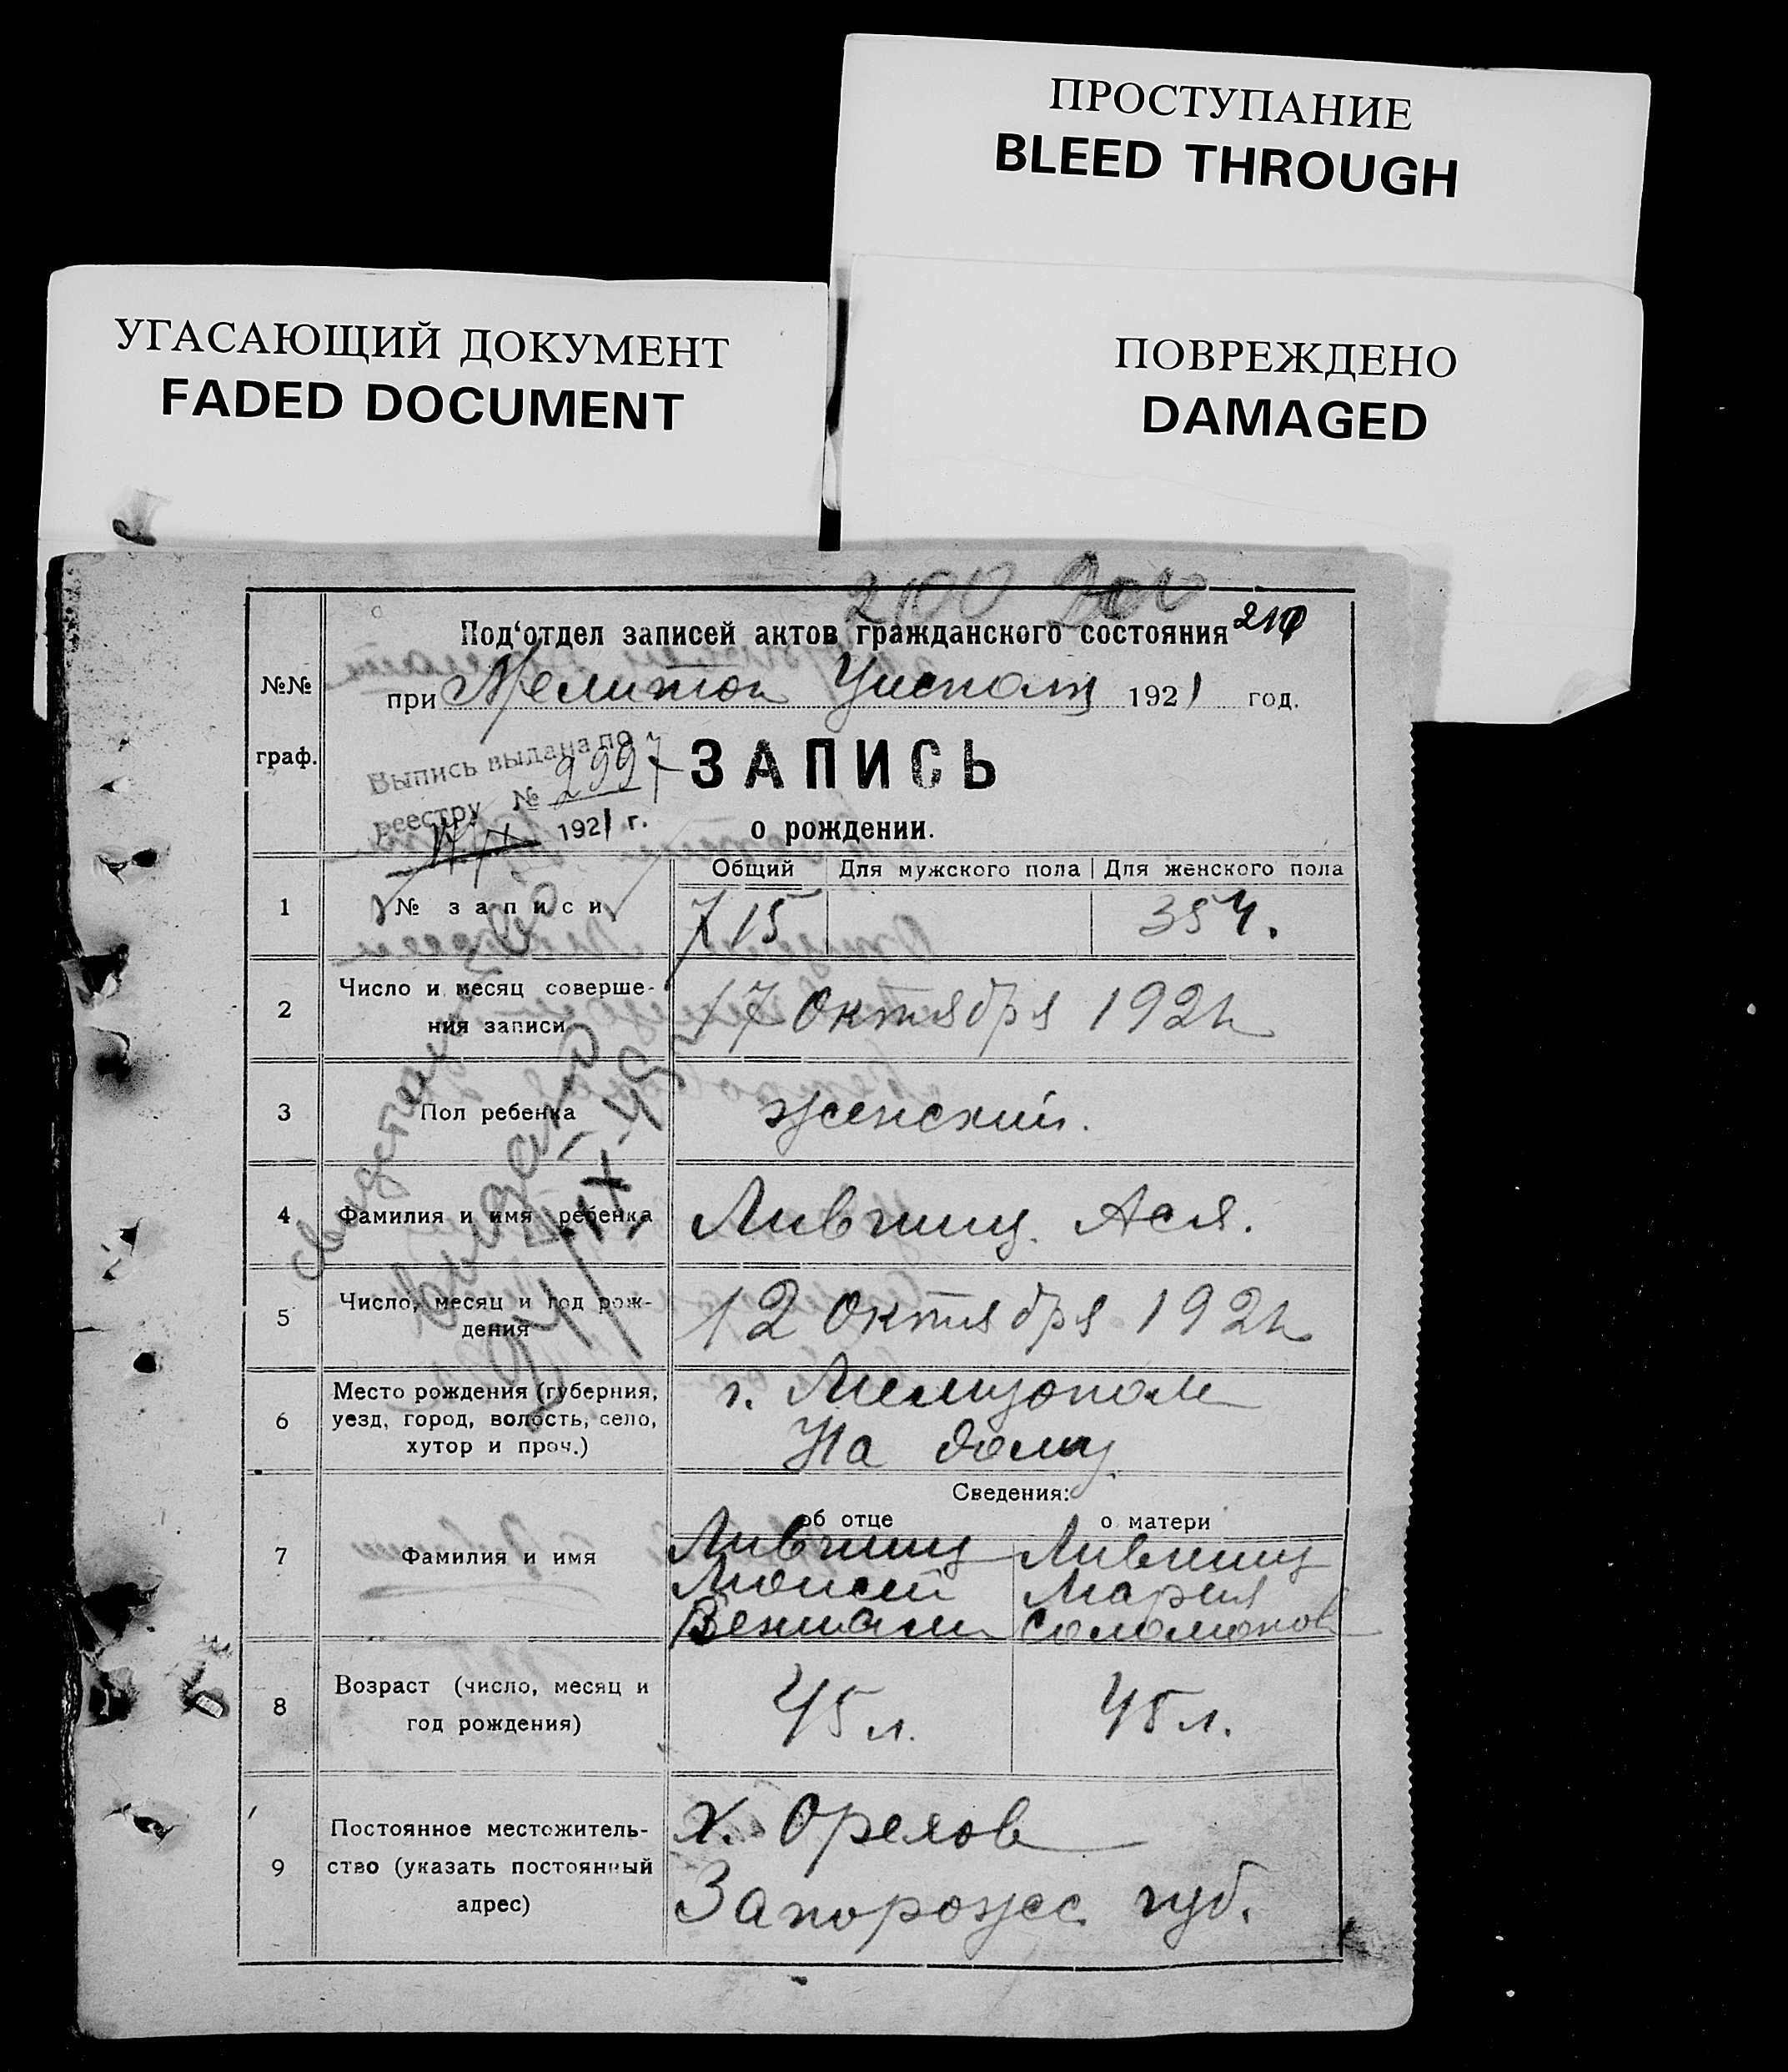 ПРОСТУПАНИЕ
BLEED THROUGH
УГАСАЮЩИЙ ДОКУМЕНТ
FADED DOCUMENT
ПОВРЕЖДЕНО
DAMAGED
2100 200
Под‘отдел записей актов гражданского состояния 210
№№
граф.
при Мелитоп Уисполк 1921 год.
Выпись выдана по
реестру № 2997
1921 г.
ЗАПИСЬ
о рождении.
Общий Для мужского пола Для женского пола
1 № записи 715 354.
2 Число и месяц соверше-
ния записи 17 Октября 1921
3 Пол ребенка женский.
4 Фамилия и имя ребенка Лившиц Ася.
5 Число, месяц и год рож-
дения 12 Октября 1921
6 Место рождения (губерния,
уезд, город, волость, село,
хутор и проч.)
г. Мелитополь
На дому
Сведения:
об отце о матери
7 Фамилия и имя
Лившиц Лившиц
Моисей Мария
Вениами Соломонов
8 Возраст (число, месяц и
год рождения)
45 л. 45 л.
9 Постоянное местожитель-
ство (указать постоянный
адрес)
х. Орехов
Запорожс. губ.
Свидетельство
выдано